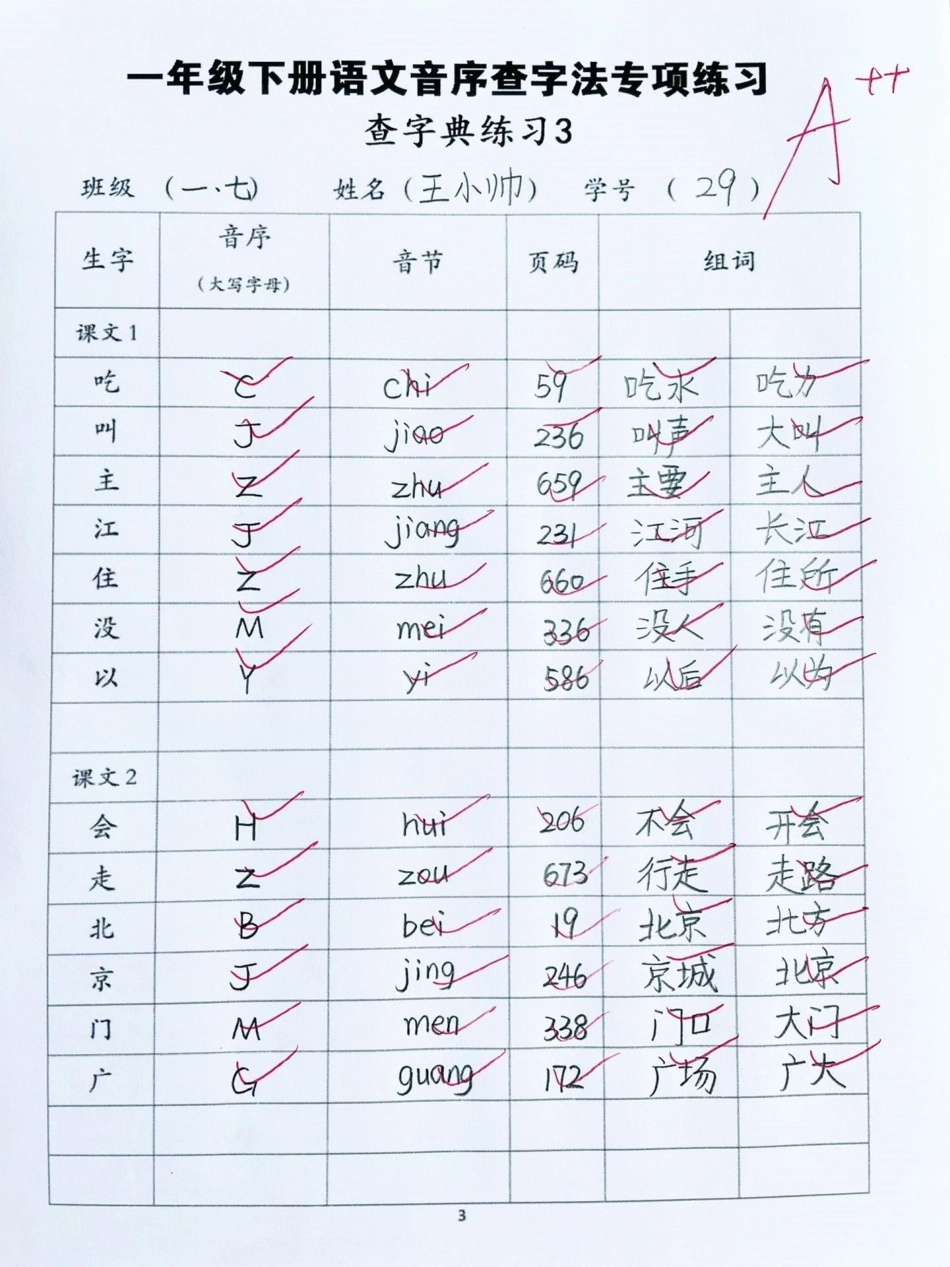 一年级下册语文音序查字法专项练习
A++
查字典练习3
班级 (一、七) 姓名 (王小帅) 学号 (29)
生字 音序 (大写字母) 音节 页码 组词
课文1
吃 C chi 59 吃水 吃力
叫 J jiao 236 叫声 大叫
主 Z zhu 659 主要 主人
江 J jiang 231 江河 长江
住 Z zhu 660 住手 住所
没 M mei 336 没人 没有
以 Y yi 586 以后 以为
课文2
会 H hui 206 不会 开会
走 Z zou 673 行走 走路
北 B bei 19 北京 北方
京 J jing 246 京城 北京
门 M men 338 门口 大门
广 G guang 172 广场 广大
3